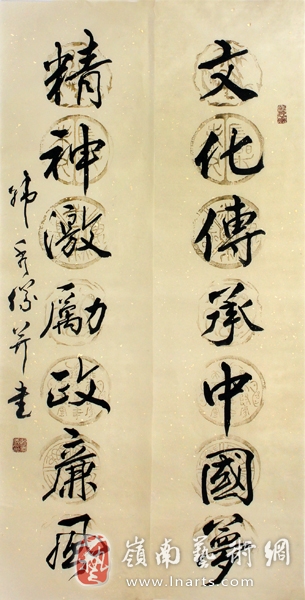 文化傳承中國夢
精神激勵政廉風
嶺南藝術網
www.lnarts.com